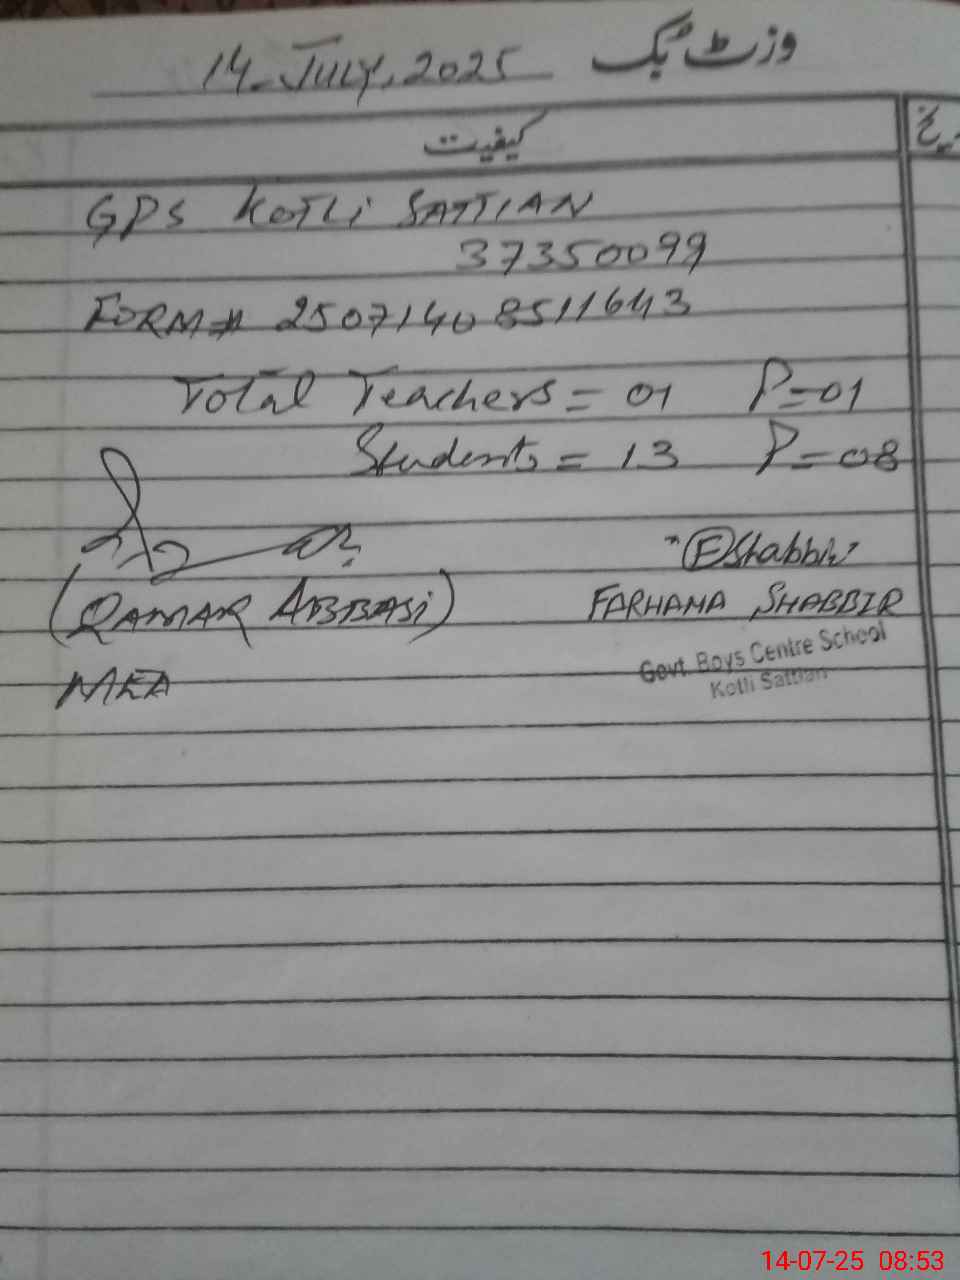 14-July,2025 وزٹ بک
کیفیت
GPS KOTLI SATTIAN
37350099
FORM# 25071408511643
Total Teachers = 01 P=01
Students = 13 P=08
(QAMAR ABBASI)
MEA
"FShabbir"
FARHANA SHABBIR
Govt. Boys Centre School
Kotli Sattian
14-07-25 08:53